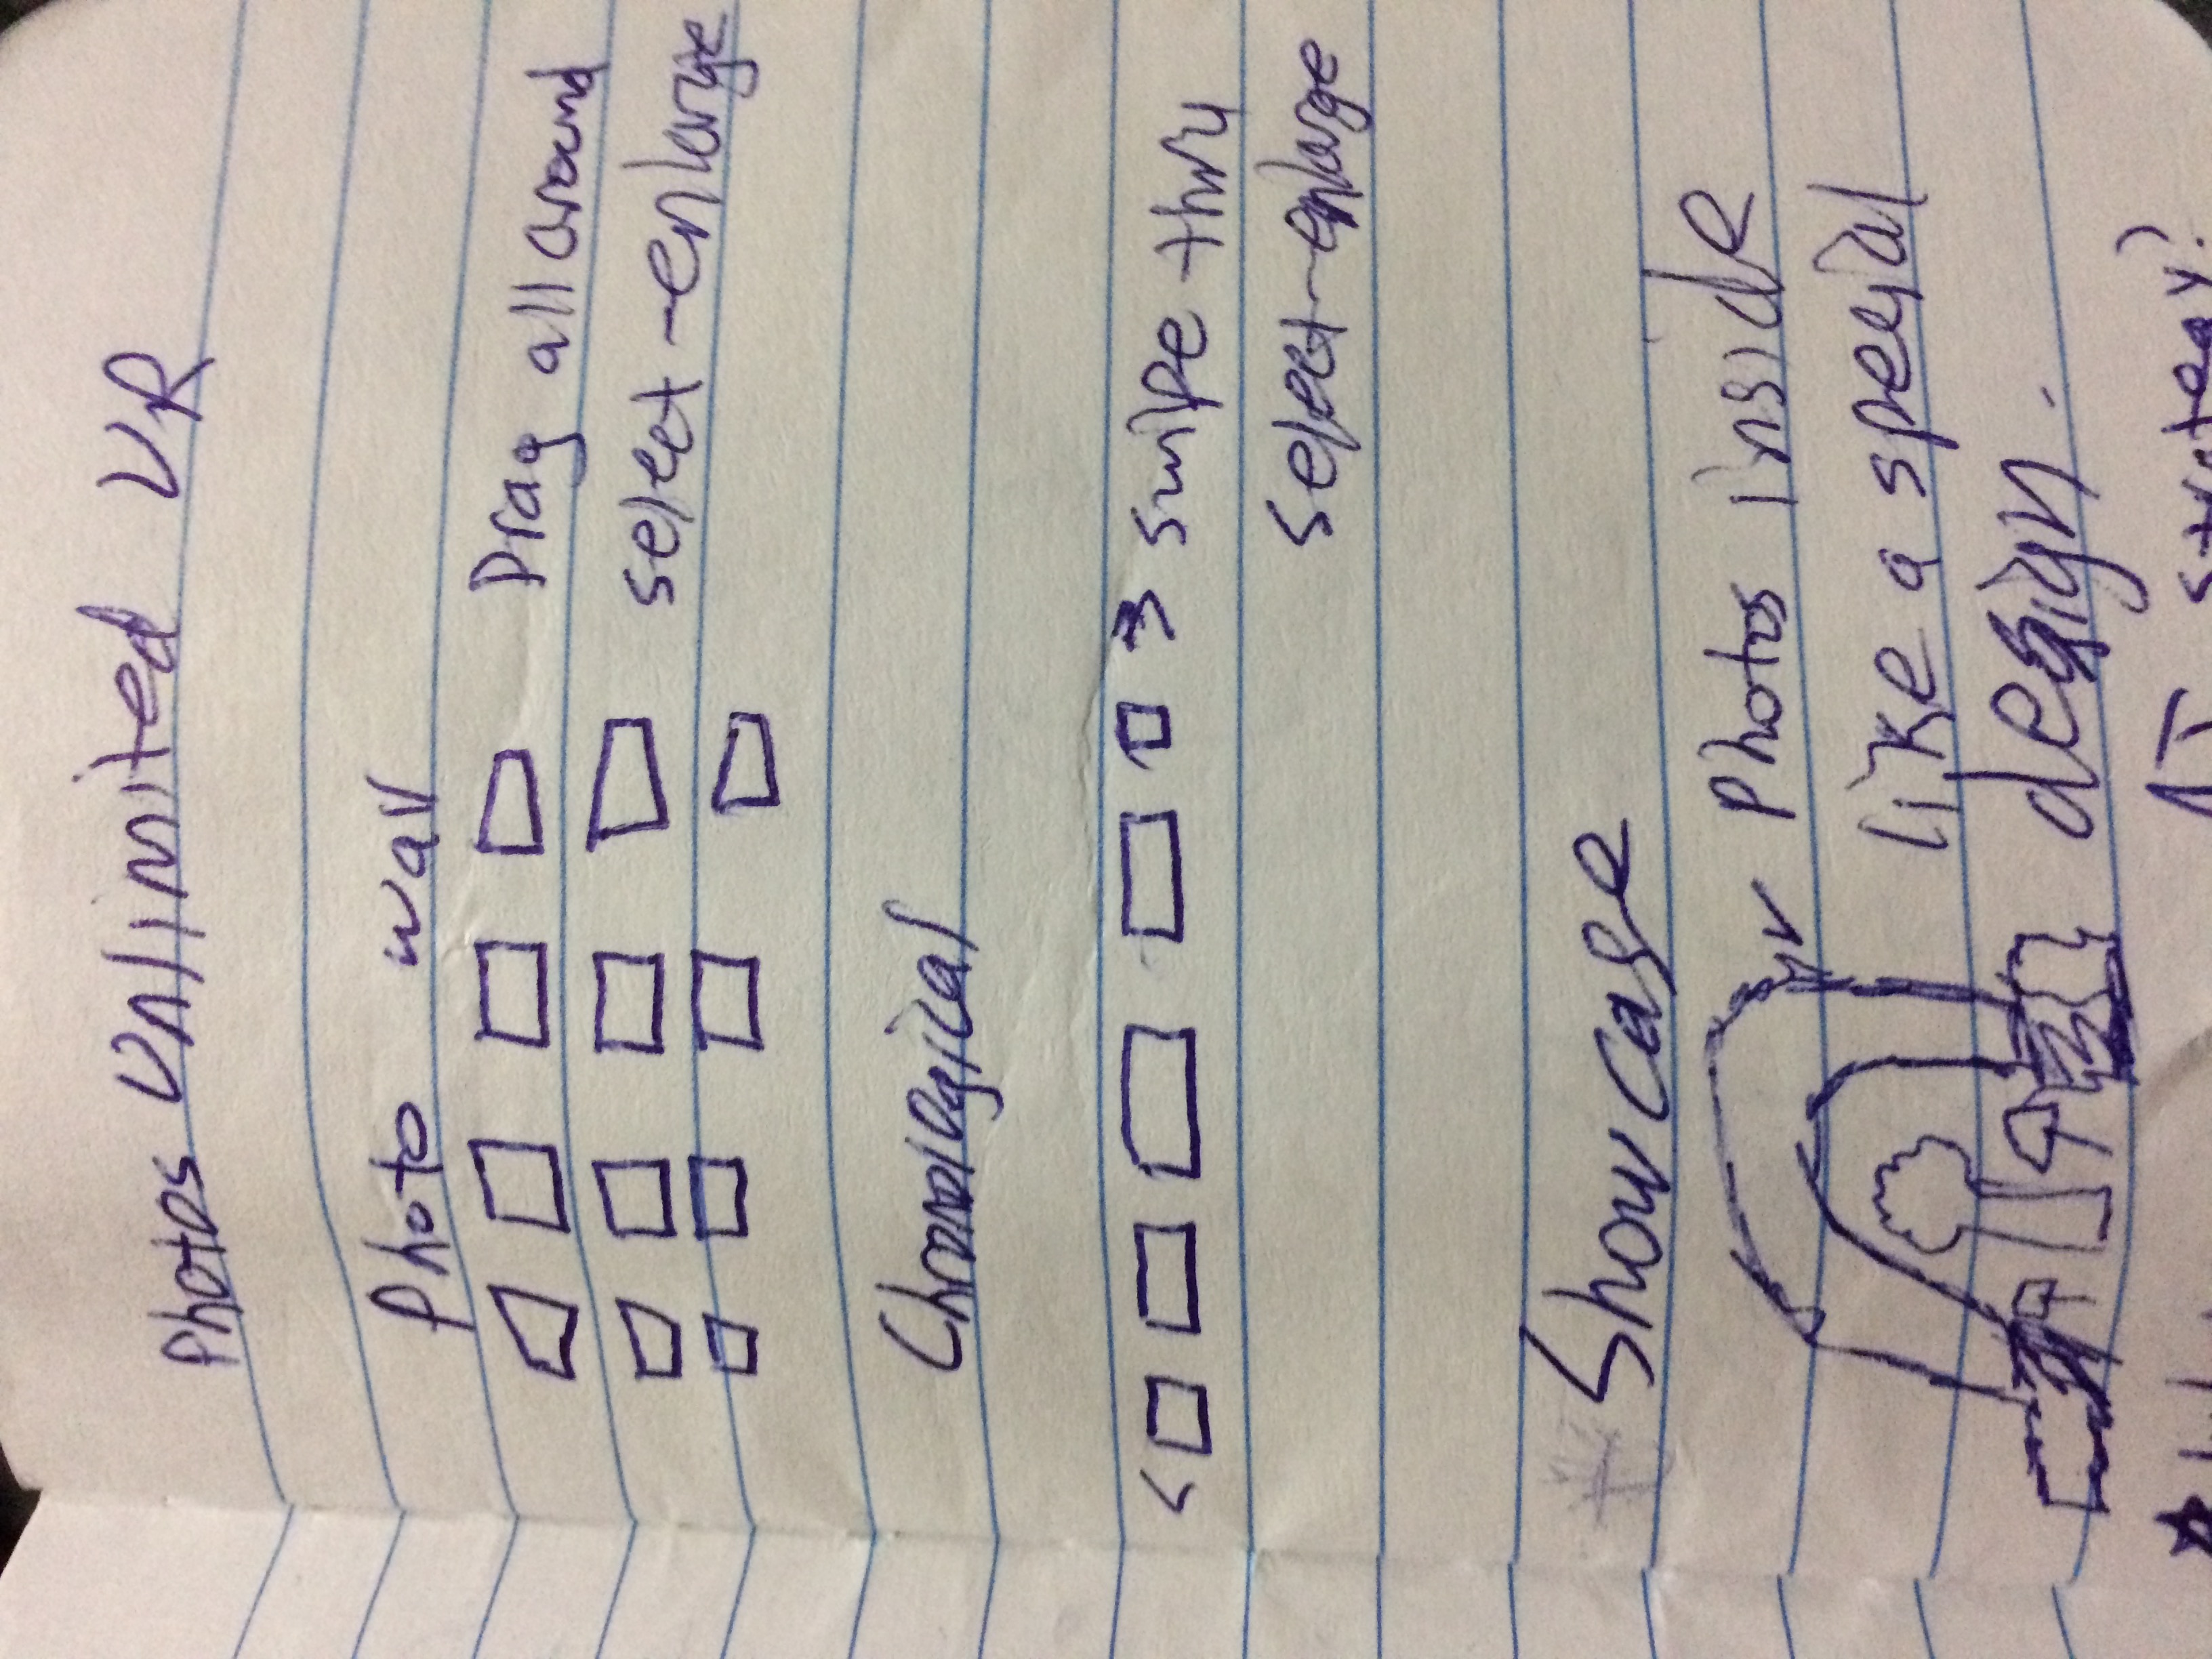 Photos Unlimited VR
Photo wall
Drag all around
select-enlarge
Chronological
< → swipe thru
select-enlarge
Showcase
Photos inside
like a special
design.
strategy?